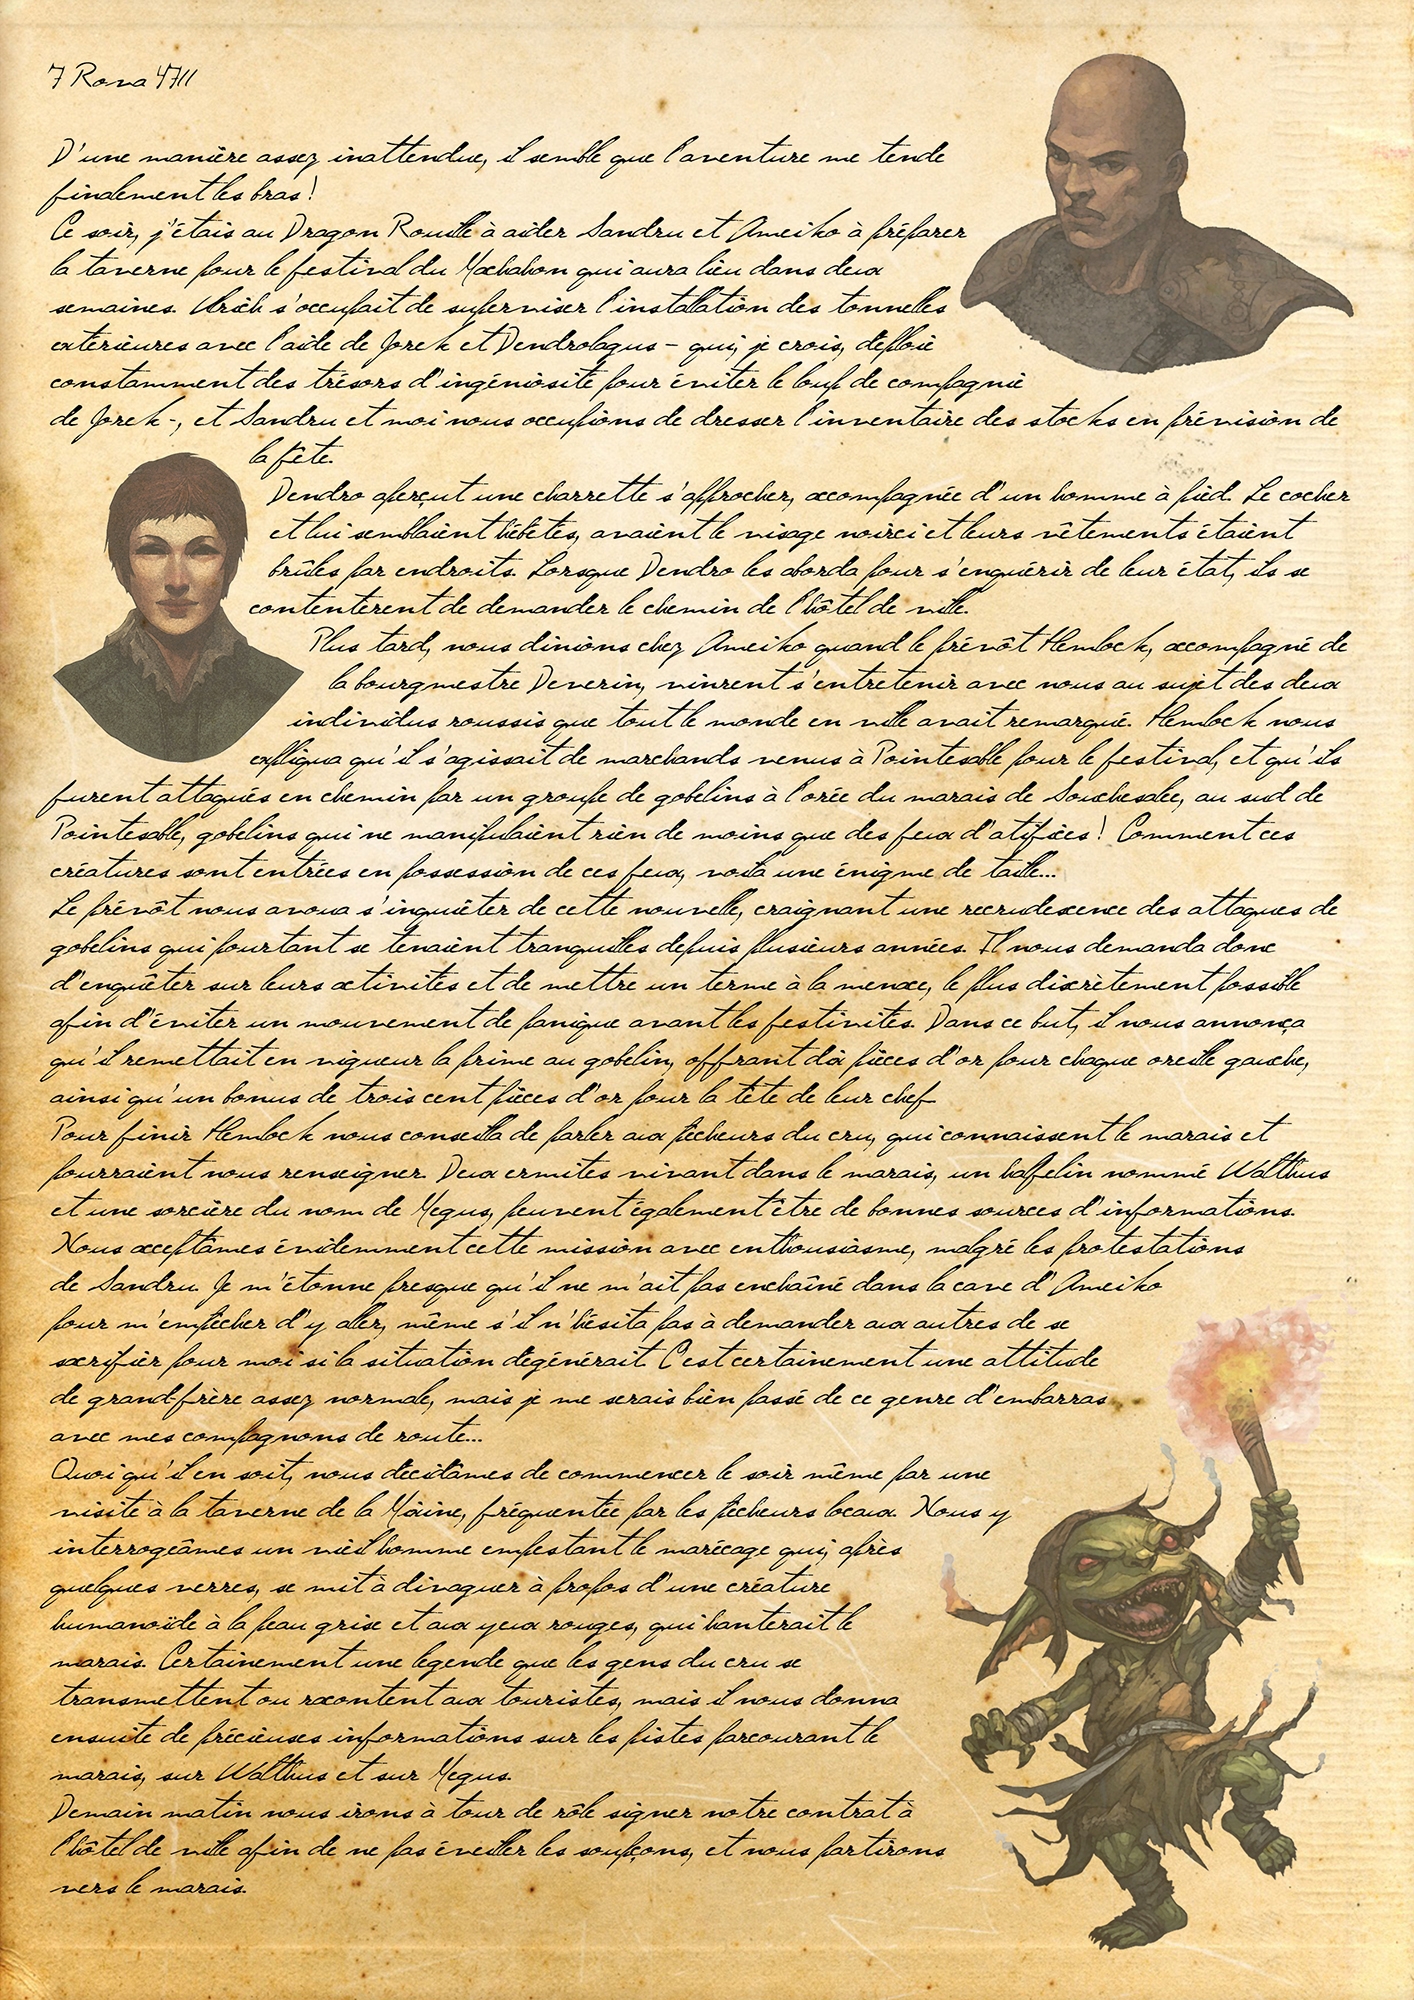 7 Rova 4711
D'une manière assez inattendue, il semble que l'aventure me tende
finalement les bras !
Ce soir, j'étais au Dragon Rouillé à aider Sandru et Ameiko à préparer
la taverne pour le festival du Machahon qui aura lieu dans deux
semaines. Ulrich s'occupait de superviser l'installation des tonnelles
extérieures avec l'aide de Jorek et Dendrolagus – qui, je crois, déploie
constamment des trésors d'ingéniosité pour éviter le loup de compagnie
de Jorek -, et Sandru et moi nous occupions de dresser l'inventaire des stocks en prévision de
la fête.
Dendro aperçut une charrette s'approcher, accompagnée d'un homme à pied. Le cocher
et lui semblaient hébétés, avaient le visage noirci et leurs vêtements étaient
brûlés par endroits. Lorsque Dendro les aborda pour s'enquérir de leur état, ils se
contentèrent de demander le chemin de l'hôtel de ville.
Plus tard, nous dinions chez Ameiko quand le prévôt Hemlock, accompagné de
la bourgmestre Deverin, vinrent s'entretenir avec nous au sujet des deux
individus roussis que tout le monde en ville avait remarqué. Hemlock nous
expliqua qu'il s'agissait de marchands venus à Pointesable pour le festival, et qu'ils
furent attaqués en chemin par un groupe de gobelins à l'orée du marais de Souchesalée, au sud de
Pointesable, gobelins qui ne manipulaient rien de moins que des feux d'atifices ! Comment ces
créatures sont entrées en possession de ces feux, voilà une énigme de taille...
Le prévôt nous avoua s'inquiéter de cette nouvelle, craignant une recrudescence des attaques de
gobelins qui pourtant se tenaient tranquilles depuis plusieurs années. Il nous demanda donc
d'enquêter sur leurs activités et de mettre un terme à la menace, le plus discrètement possible
afin d'éviter un mouvement de panique avant les festivités. Dans ce but, il nous annonça
qu'il remettait en vigueur la prime au gobelin, offrant dix pièces d'or pour chaque oreille gauche,
ainsi qu'un bonus de trois cent pièces d'or pour la tête de leur chef.
Pour finir Hemlock nous conseilla de parler aux pêcheurs du cru, qui connaissent le marais et
pourraient nous renseigner. Deux ermites vivant dans le marais, un halfelin nommé Walthus
et une sorcière du nom de Megus, peuvent également être de bonnes sources d'informations.
Nous acceptâmes évidemment cette mission avec enthousiasme, malgré les protestations
de Sandru. Je m'étonne presque qu'il ne m'ait pas enchaîné dans la cave d'Ameiko
pour m'empêcher d'y aller, même s'il n'hésita pas à demander aux autres de se
sacrifier pour moi si la situation dégénérait. C'est certainement une attitude
de grand-frère assez normale, mais je me serais bien passé de ce genre d'embarras
avec mes compagnons de route...
Quoi qu'il en soit, nous décidâmes de commencer le soir même par une
visite à la taverne de la Maine, fréquentée par les pêcheurs locaux. Nous y
interrogeâmes un vieil homme empestant le marécage qui, après
quelques verres, se mit à divaguer à propos d'une créature
humanoïde à la peau grise et aux yeux rouges, qui hanterait le
marais. Certainement une légende que les gens du cru se
transmettent ou racontent aux touristes, mais il nous donna
ensuite de précieuses informations sur les pistes parcourant le
marais, sur Walthus et sur Megus.
Demain matin nous irons à tour de rôle signer notre contrat à
l'hôtel de ville afin de ne pas éveiller les soupçons, et nous partirons
vers le marais.